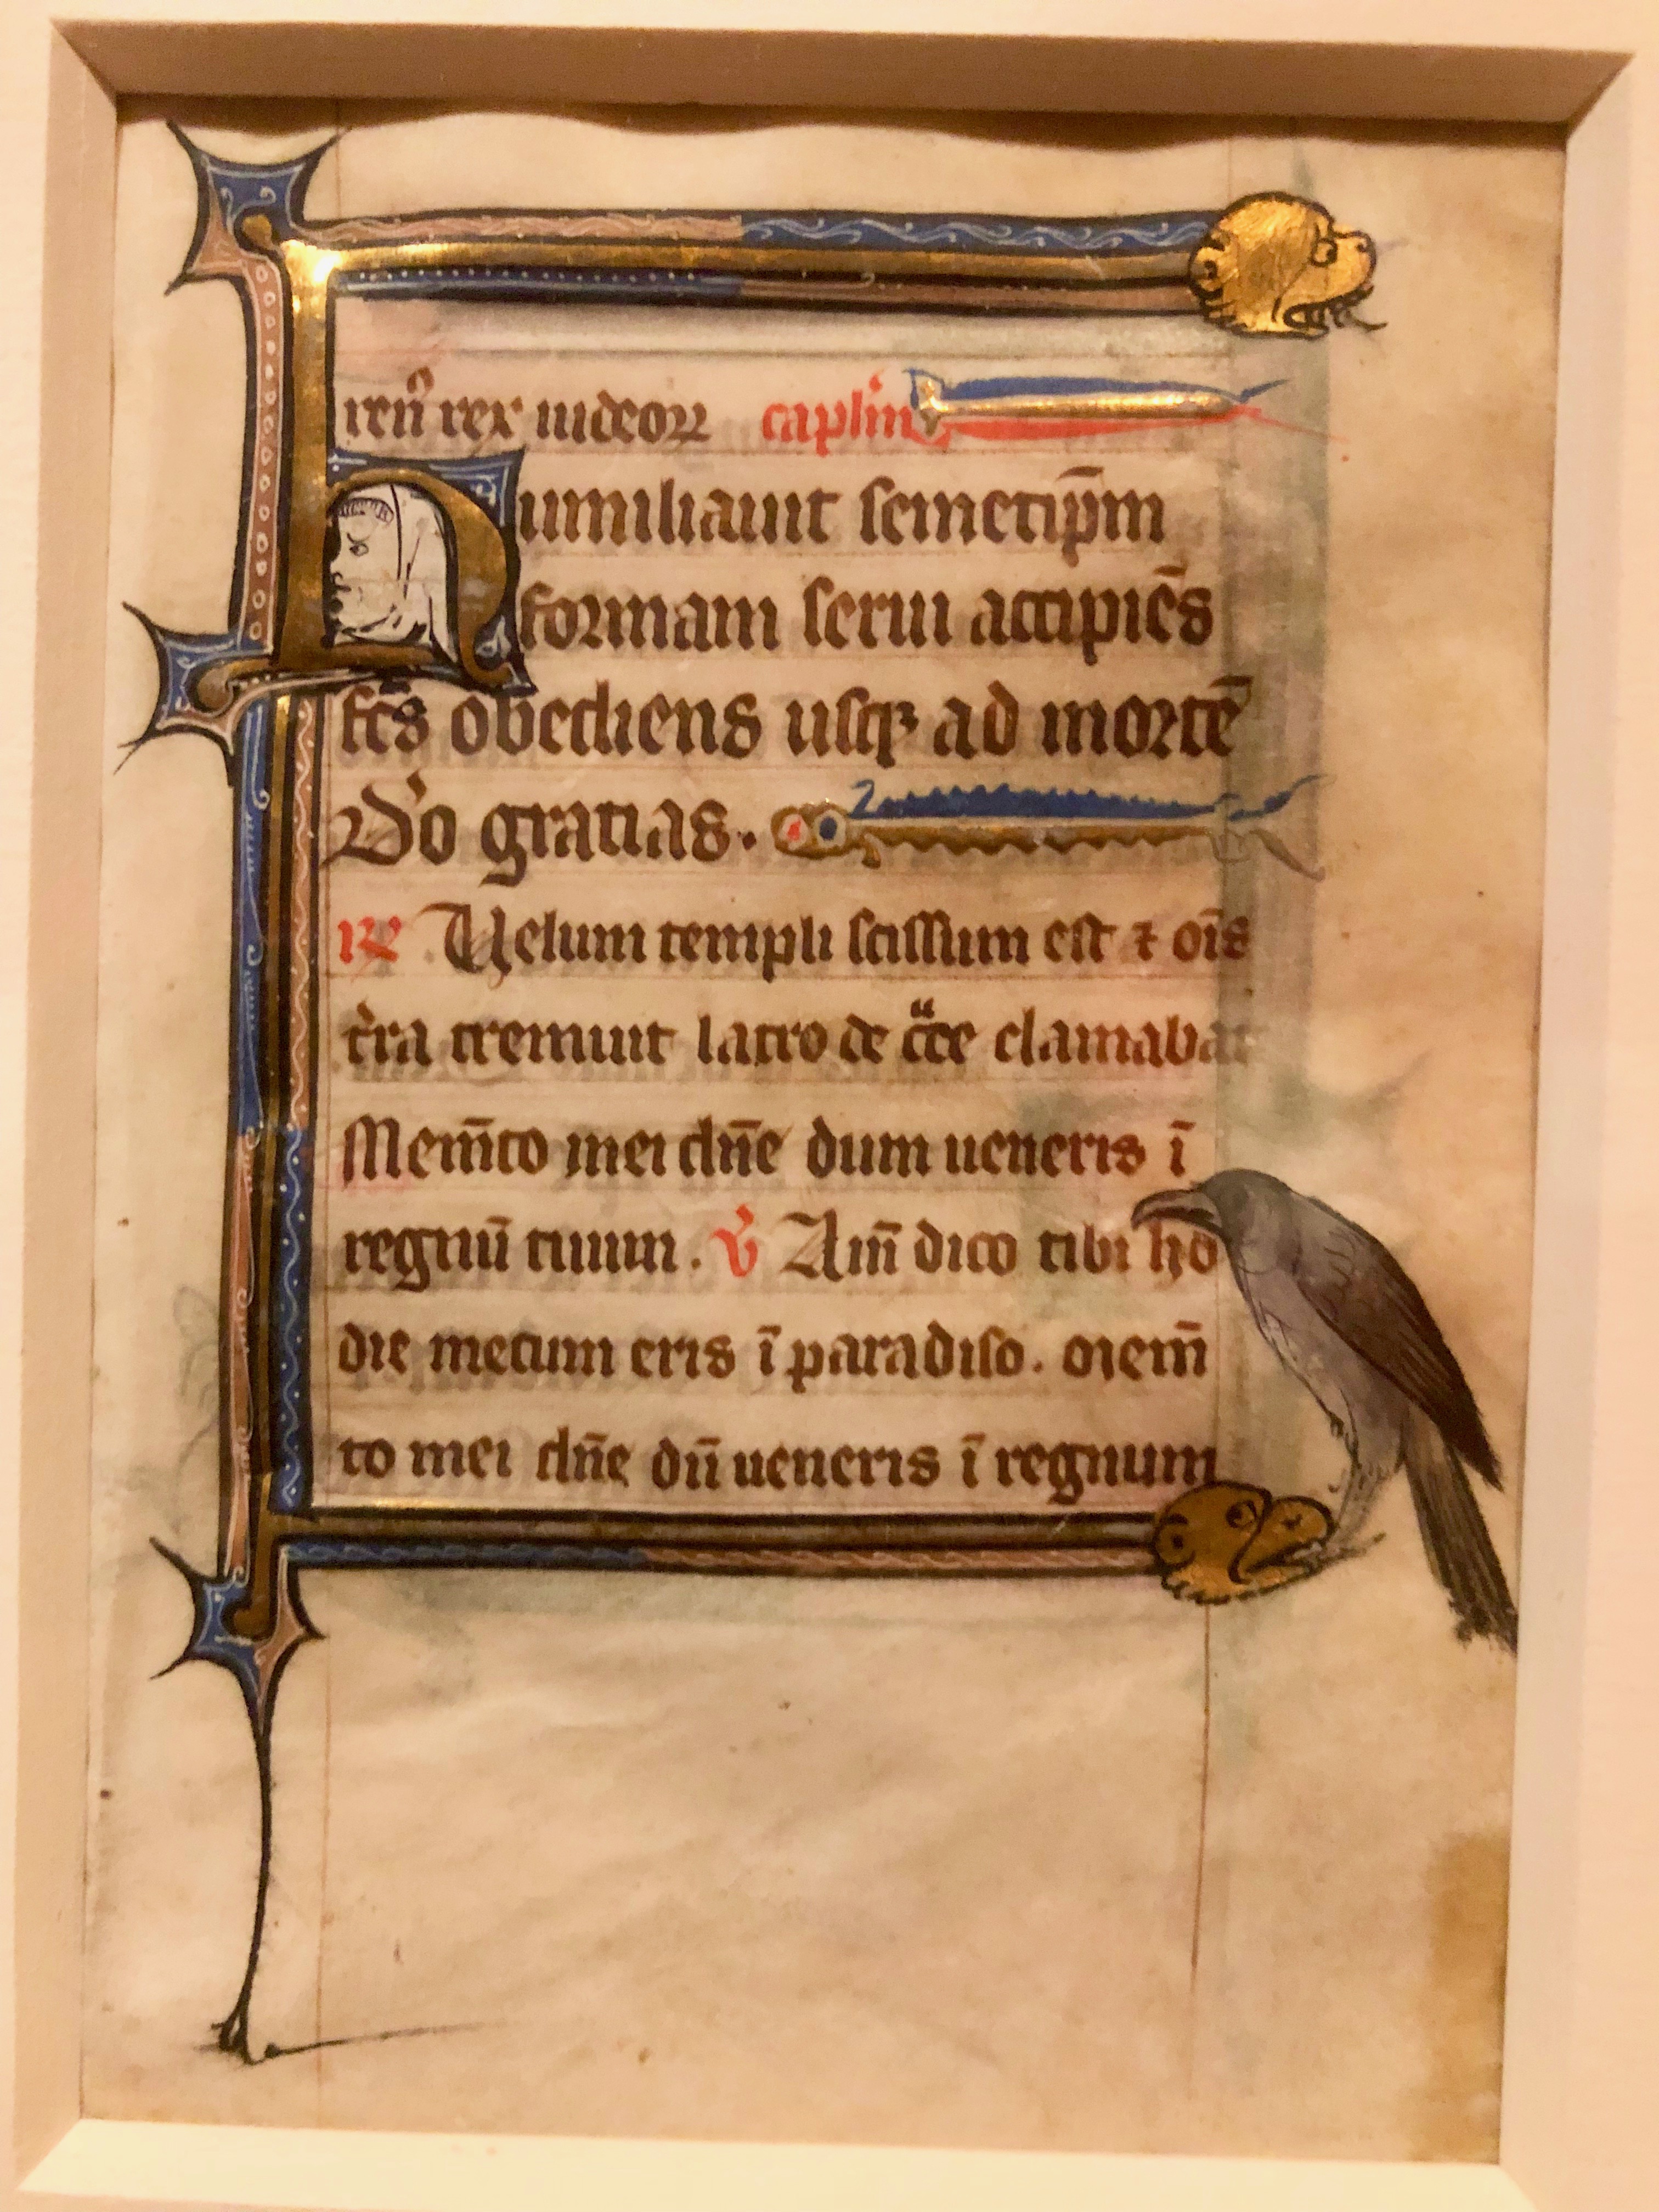 renꝰ rex iudeoꝝ caplm̄
Humiliauit semetip̄m
formam serui accipiēs
fc̄s obediens usqꝫ ad mortē
Do gratias.
℟ Uelum templi scissum est ⁊ oīs
t̉ra tremuit latro de cͣce clamabat
Mem̄to mei dn̄e dum ueneris ī
regnū tuum. ℣ Am̄ dico tibi ho
die mecum eris ī paradiso. Mem̄
to mei dn̄e dū ueneris ī regnum